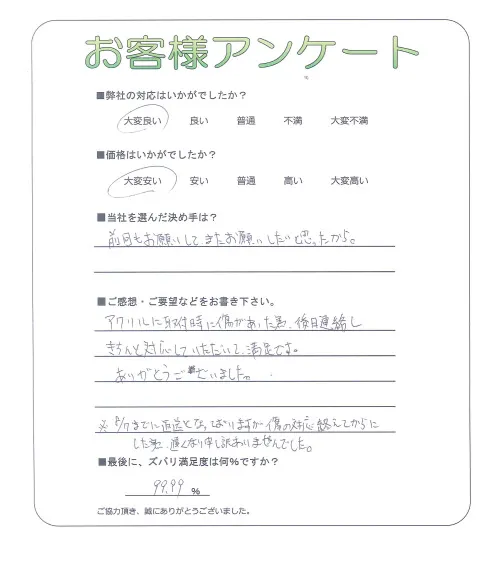 お客様アンケート
■弊社の対応はいかがでしたか？
大変良い 良い 普通 不満 大変不満
■価格はいかがでしたか？
大変安い 安い 普通 高い 大変高い
■当社を選んだ決め手は？
前回もお願いしてまたお願いしたいと思ったから。
■ご感想・ご要望などをお書き下さい。
アクリルに取付時に傷があった為、後日連絡し
きちんと対応していただいて、満足です。
ありがとうございました。
※ 5/7までに返送となっておりますが傷の対応終えてからに
した為、遅くなり申し訳ありませんでした。
■最後に、ズバリ満足度は何%ですか？
99.99 %
ご協力頂き、誠にありがとうございました。